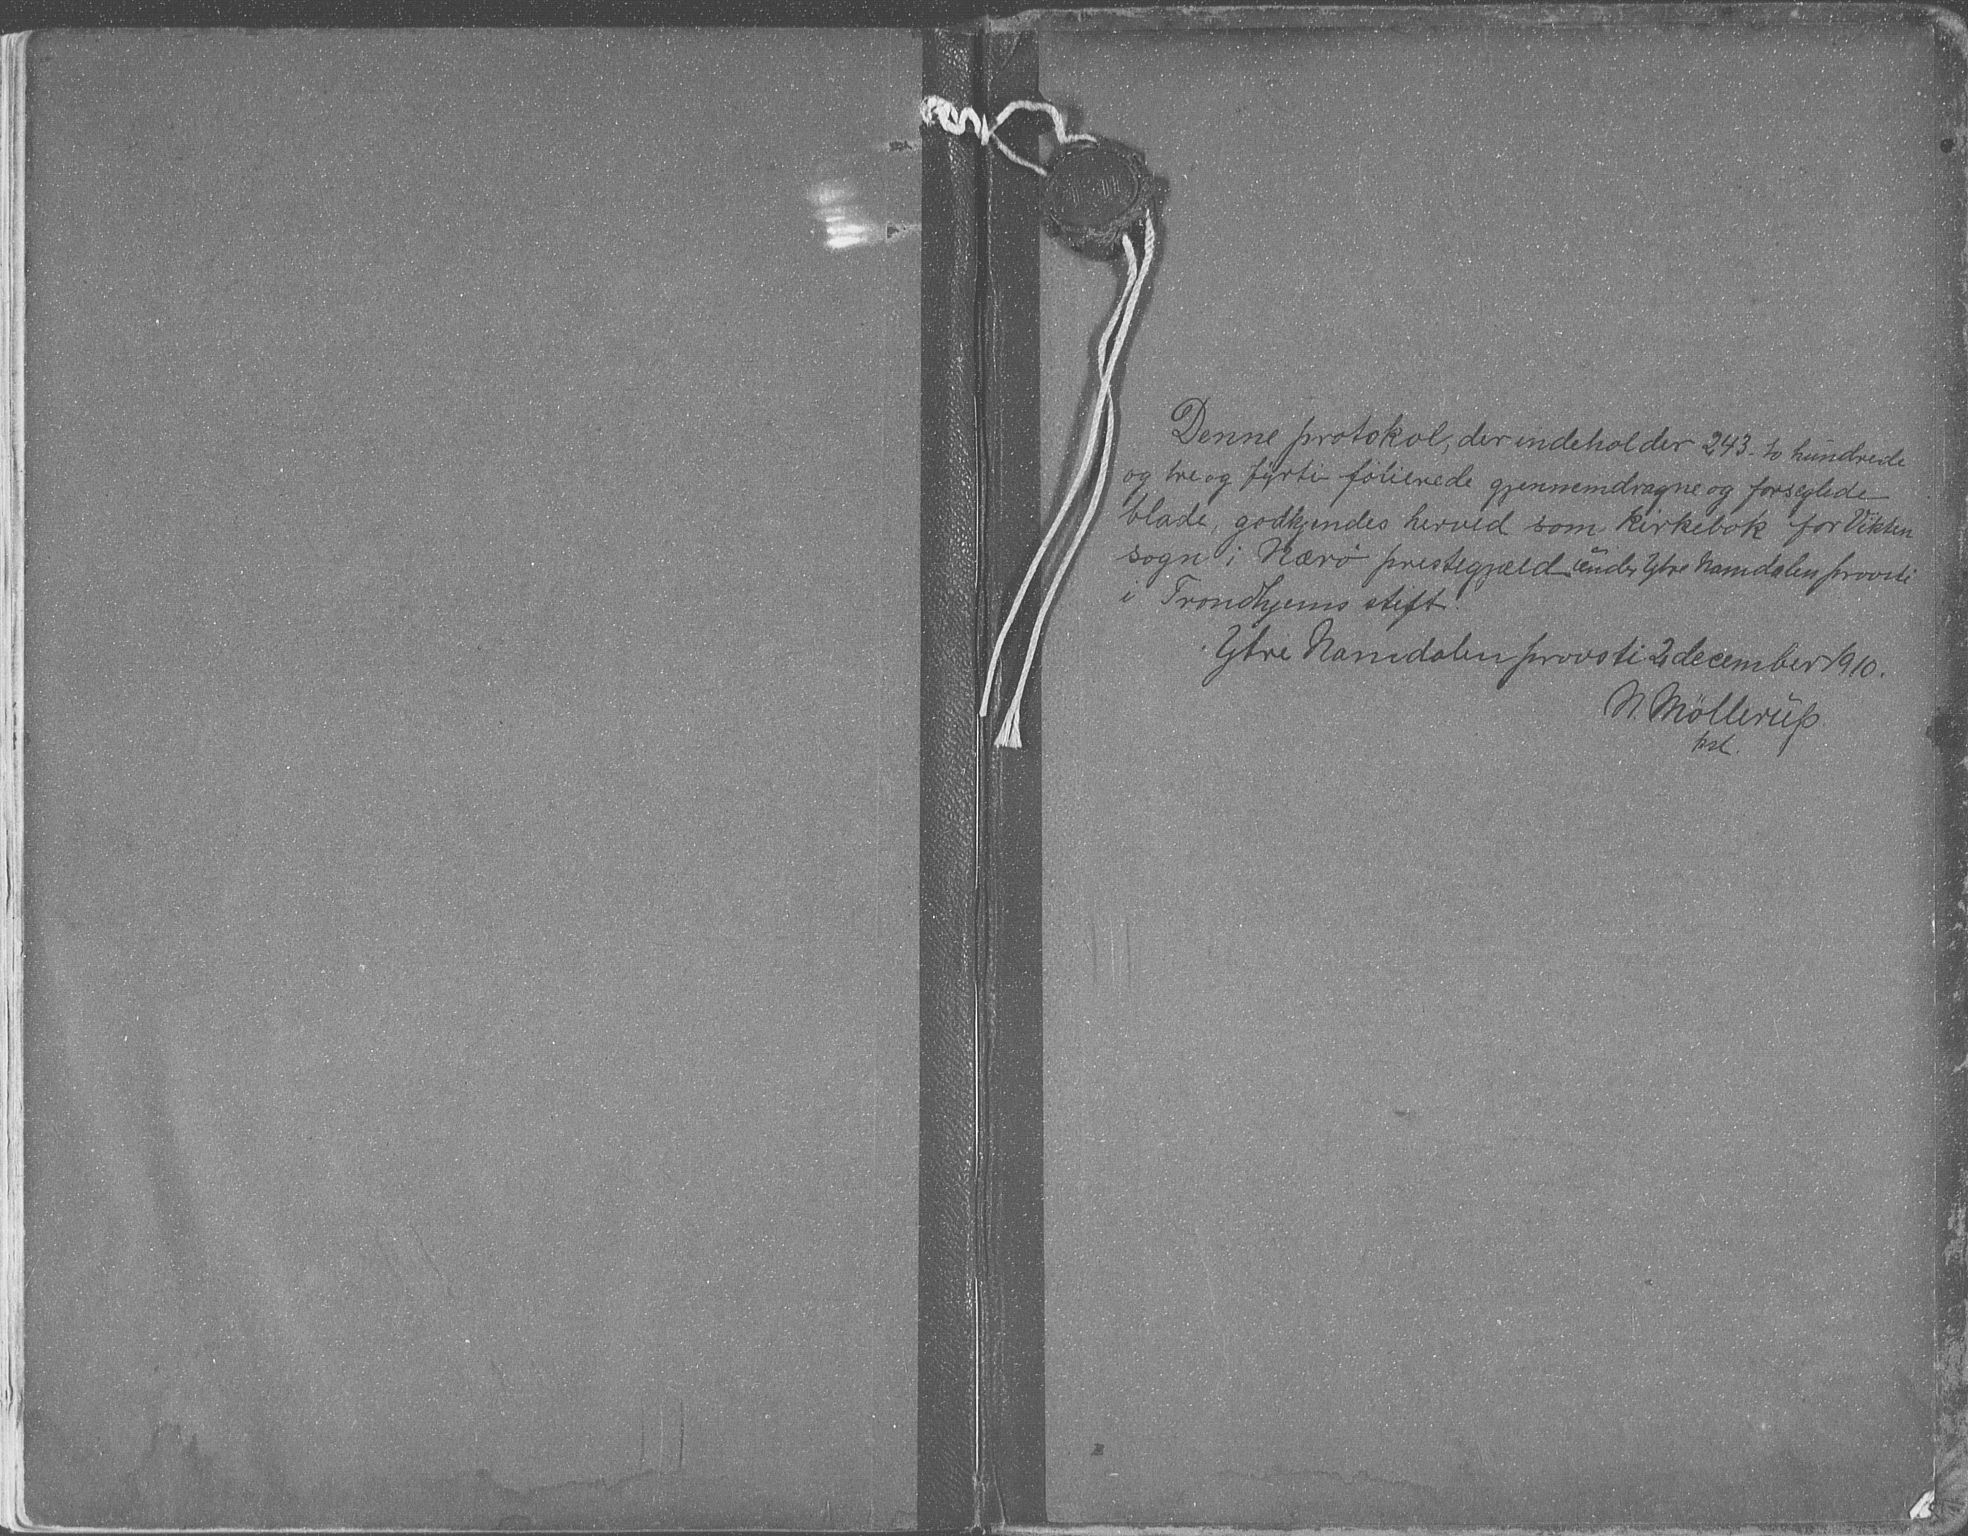 Denne protokol, der indeholder 243 - to hundrede
og tre og fyrti - folierede gjennemdragne og forseglede
blade, godkjendes herved som kirkebok for Vikten
sogn i Nærö prestegjæld under Ytre Namdalen provsti
i Trondhjems stift.
Ytre Namdalen provsti 2 december 1910.
N. Möllerup
kst.